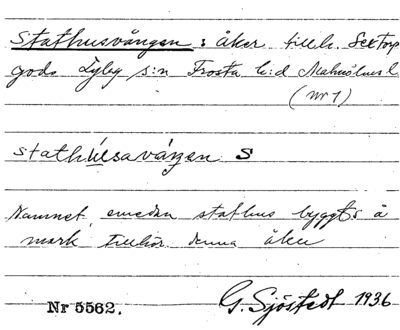 Stathusvången: åker tillh. Sextorp
gods Zyby s:n Frosta h:d Malmöhus l.
(nr 1)
stathúsavåŋen S
Namnet emedan stathus byggts å
mark tillhör. denna åker
Nr 5562. G. Sjöstedt 1936